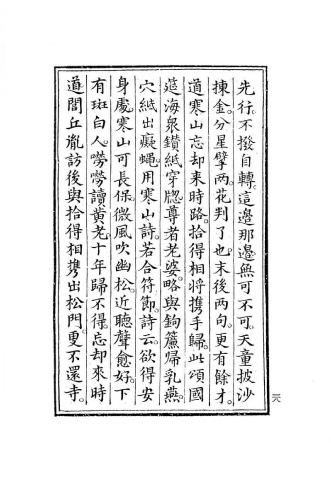 先行。不撥自轉。這邊那邊。無可不可。天童披沙
揀金。分星擘兩。花判了也。末後兩句。更有餘才。
道寒山忘却來時路。拾得相將携手歸。此頌國
筵海衆鑽紙穿牕。尊者老婆。略與鉤簾歸乳燕。
穴紙出癡蠅。用寒山詩。若合符節。詩云。欲得安
身處。寒山可長保。微風吹幽松。近聽聲愈好。下
有斑白人。嘮嘮讀黃老。十年歸不得。忘却來時
道。閭丘胤訪後。與拾得相携出松門。更不還寺。